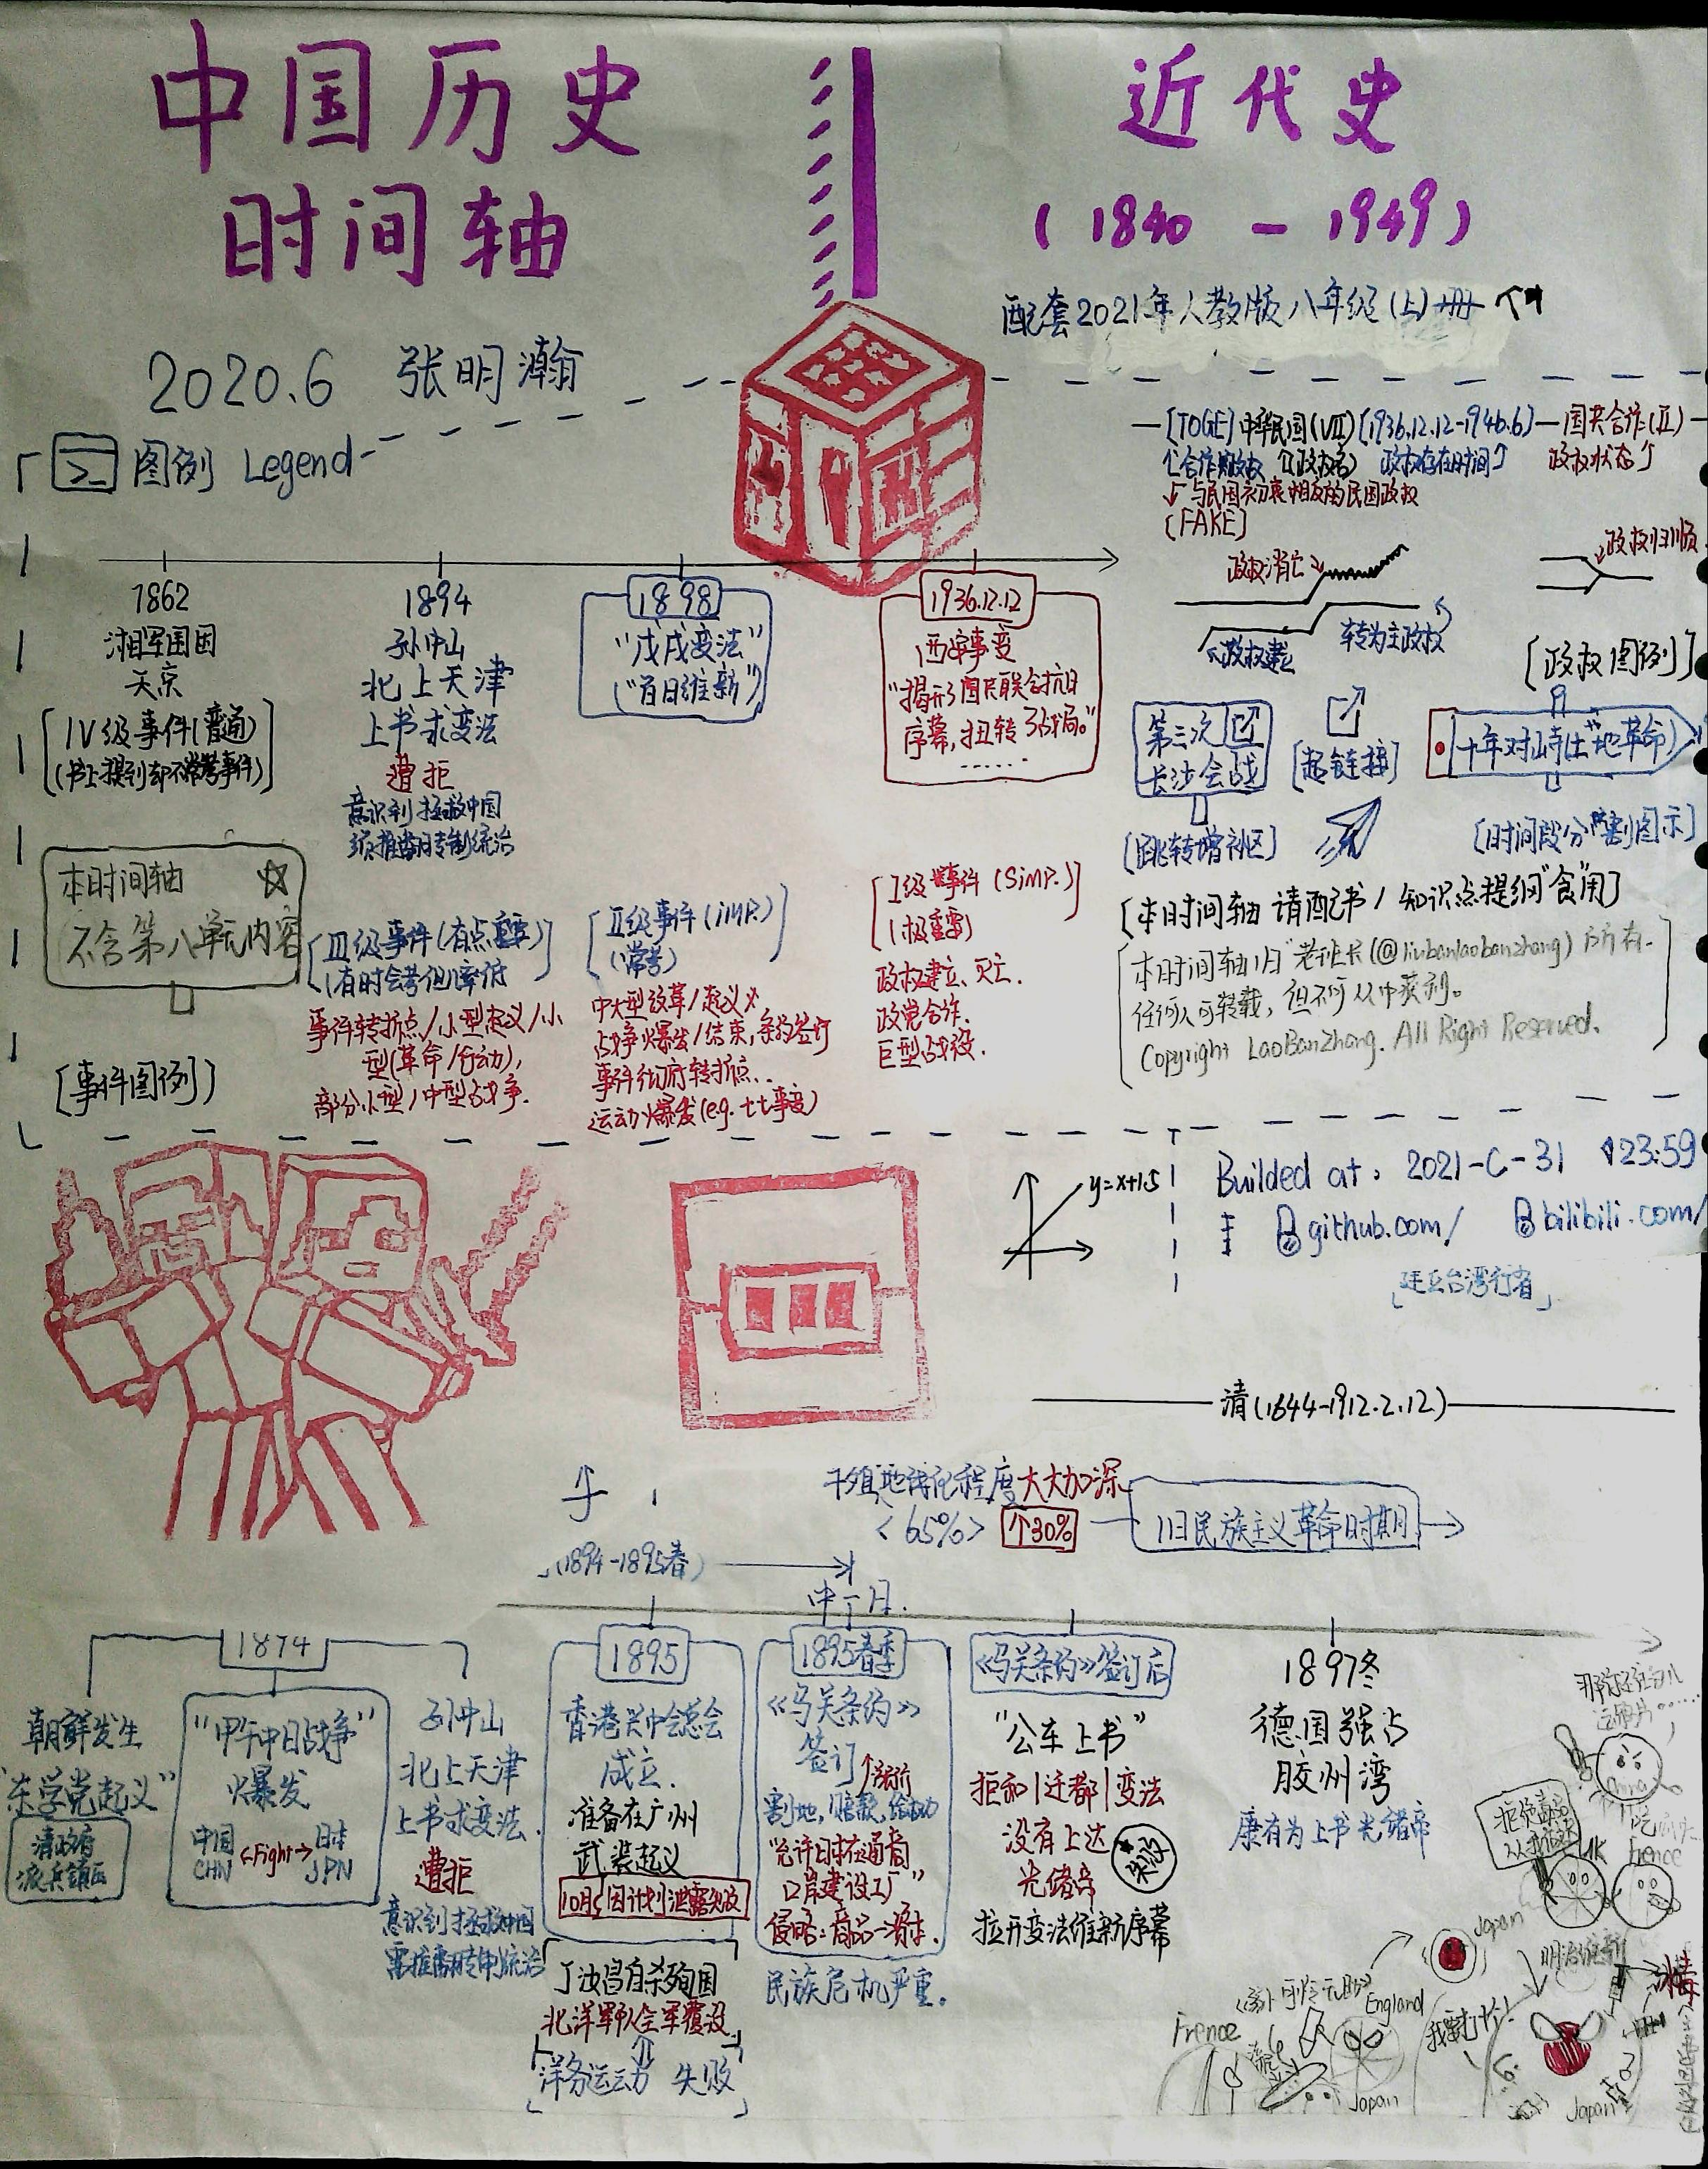 中国历史
时间轴
近代史
(1840 - 1949)
配套2021年人教版八年级(上)册
2020.6 张明瀚
图例 Legend
[TOGE]中华民国(VII)[1936.12.12-1946.6]—国共合作(II)
政权存在时间↑ 政权状态↑
与民国初衷相反的民国政权
[FAKE]
政权消亡
政权归顺
政权建立
转为主政权
[政权图例]
1862
湘军围困
天京
[IV级事件(普通)
(书上提到却不常考事件)]
1894
孙中山
北上天津
上书求变法
遭拒
意识到拯救中国
须推翻专制统治
1898
"戊戌变法"
("百日维新")
1936.12.12
西安事变
"揭开了国共联合抗日
序幕,扭转了战局。"
......
第三次
长沙会战
[超链接]
十年对峙(土地革命)
[跳转增补区]
[时间段分割图示]
本时间轴
不含第八单元内容
[III级事件(有点重要)
(有时会考但概率低]
事件转折点/小型起义/小
型(革命/行动),
部分小型/中型战争.
[II级事件(iMP.)
(常考)]
中大型改革/起义
战争爆发/结束,条约签订
事件彻底转折点..
运动爆发(e.g. 七七事变)
[I级事件(SiMP.)
(极重要)]
政权建立、灭亡.
政党合作.
巨型战役.
[本时间轴请配书/知识点提纲"食"用]
本时间轴归"老班长(@liubanlaobanzhang)所有.
任何人可转载,但不可从中获利。
Copyright LaoBanZhang. All Right Reserved.
[事件图例]
y=x+1.5
Builded at: 2021-C-31 23:59
github.com/ bilibili.com/
清(1644-1912.2.12)
半殖地化程度大大加深
<65%> ↑30%
旧民族主义革命时期
(1894-1895春)
朝鲜发生
"东学党起义"
清政府
派兵镇压
1874
"甲午中日战争"
爆发
中国 日本
CHN <Fight> JPN
孙中山
北上天津
上书求变法.
遭拒
意识到拯救中国
需推翻专制统治
1895
香港兴中会总会
成立.
准备在广州
武装起义
10月因计划泄露失败
丁汝昌自杀殉国
北洋军队全军覆没
洋务运动 失败
1895春季
《马关条约》
签订
割地,赔款,
"允许日本在通商
口岸建设工厂"
侵略:商品→资本.
民族危机严重.
《马关条约》签订后
"公车上书"
拒和|迁都|变法
没有上达
光绪帝
失败
拉开变法维新序幕
1897冬
德国强占
胶州湾
康有为上书光绪帝
拒绝毒品
从我做起
UK
Japan
明治维新
冰毒
Frence
England
我要打你!
Japan
Japan